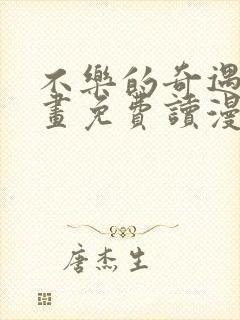 不樂的奇遇
畫免費讀漫
唐杰生